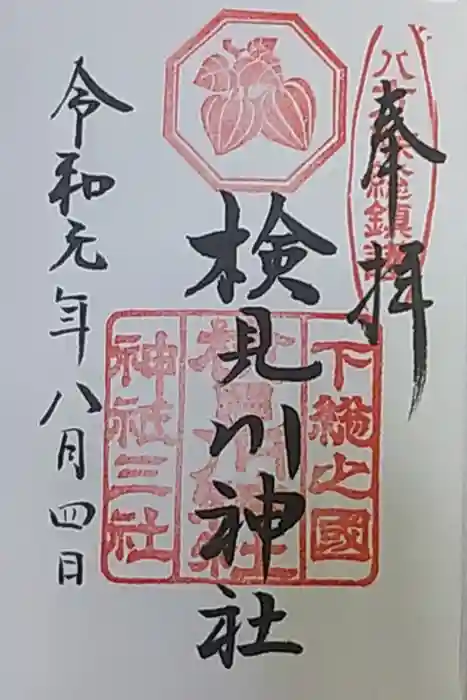 奉拝
八方除総鎮護
検見川神社
下総之國
神社三社
令和元年八月四日